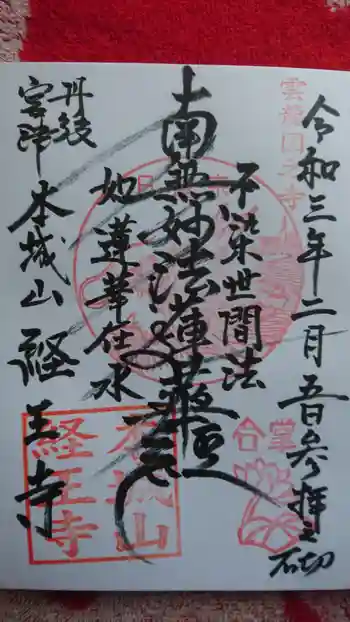 令和三年二月五日参拝之
石切
不染世間法
南無妙法蓮華経
如蓮華在水
丹後
宮津
本城山 経王寺
合掌
本城山
経王寺